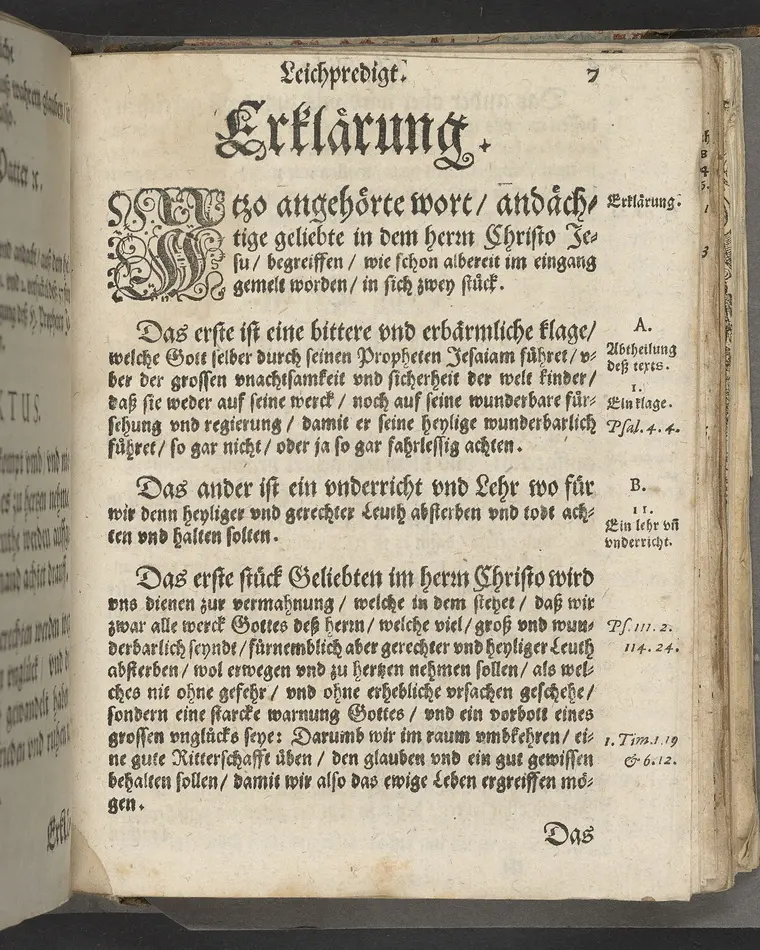 Leichpredigt. 7
Erklärung.
ITzo angehörte wort / andäch-
tige geliebte in dem herrn Christo Je-
su / begreiffen / wie schon albereit im eingang
gemelt worden / in sich zwey stück.
Erklärung.
Das erste ist eine bittere vnd erbärmliche klage /
welche Gott selber durch seinen Propheten Jesaiam führet / v-
ber der grossen vnachtsamkeit vnd sicherheit der welt kinder /
daß sie weder auf seine werck / noch auf seine wunderbare für-
sehung vnd regierung / damit er seine heylige wunderbarlich
führet / so gar nicht / oder ja so gar fahrlessig achten.
A.
Abtheilung
deß texts.
1.
Ein klage.
Psal. 4. 4.
Das ander ist ein vnderricht vnd Lehr wo für
wir denn heyliger vnd gerechter Leuth absterben vnd todt ach-
ten vnd halten solten.
B.
11.
Ein lehr vñ
vnderricht.
Das erste stück Geliebten im herrn Christo wird
vns dienen zur vermahnung / welche in dem stehet / daß wir
zwar alle werck Gottes deß herrn / welche viel / groß vnd wun-
derbarlich seyndt / fürnemblich aber gerechter vnd heyliger Leuth
absterben / wol erwegen vnd zu hertzen nehmen sollen / als wel-
ches nit ohne gefehr / vnd ohne erhebliche vrsachen geschehe /
sondern eine starcke warnung Gottes / vnd ein vorbott eines
grossen vnglücks seye: Darumb wir im raum vmbkehren / ei-
ne gute Ritterschafft üben / den glauben vnd ein gut gewissen
behalten sollen / damit wir also das ewige Leben ergreiffen mö-
gen.
Ps. 111. 2.
114. 24.
1. Tim. 1. 19
& 6. 12.
Das